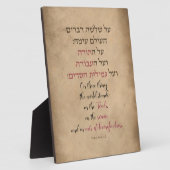 על שלשה דברים
העולם עומד:
על התורה
ועל העבודה
ועל גמילות חסדים:
On three things
the world stands
on the Torah,
on the service
and on acts of loving kindness